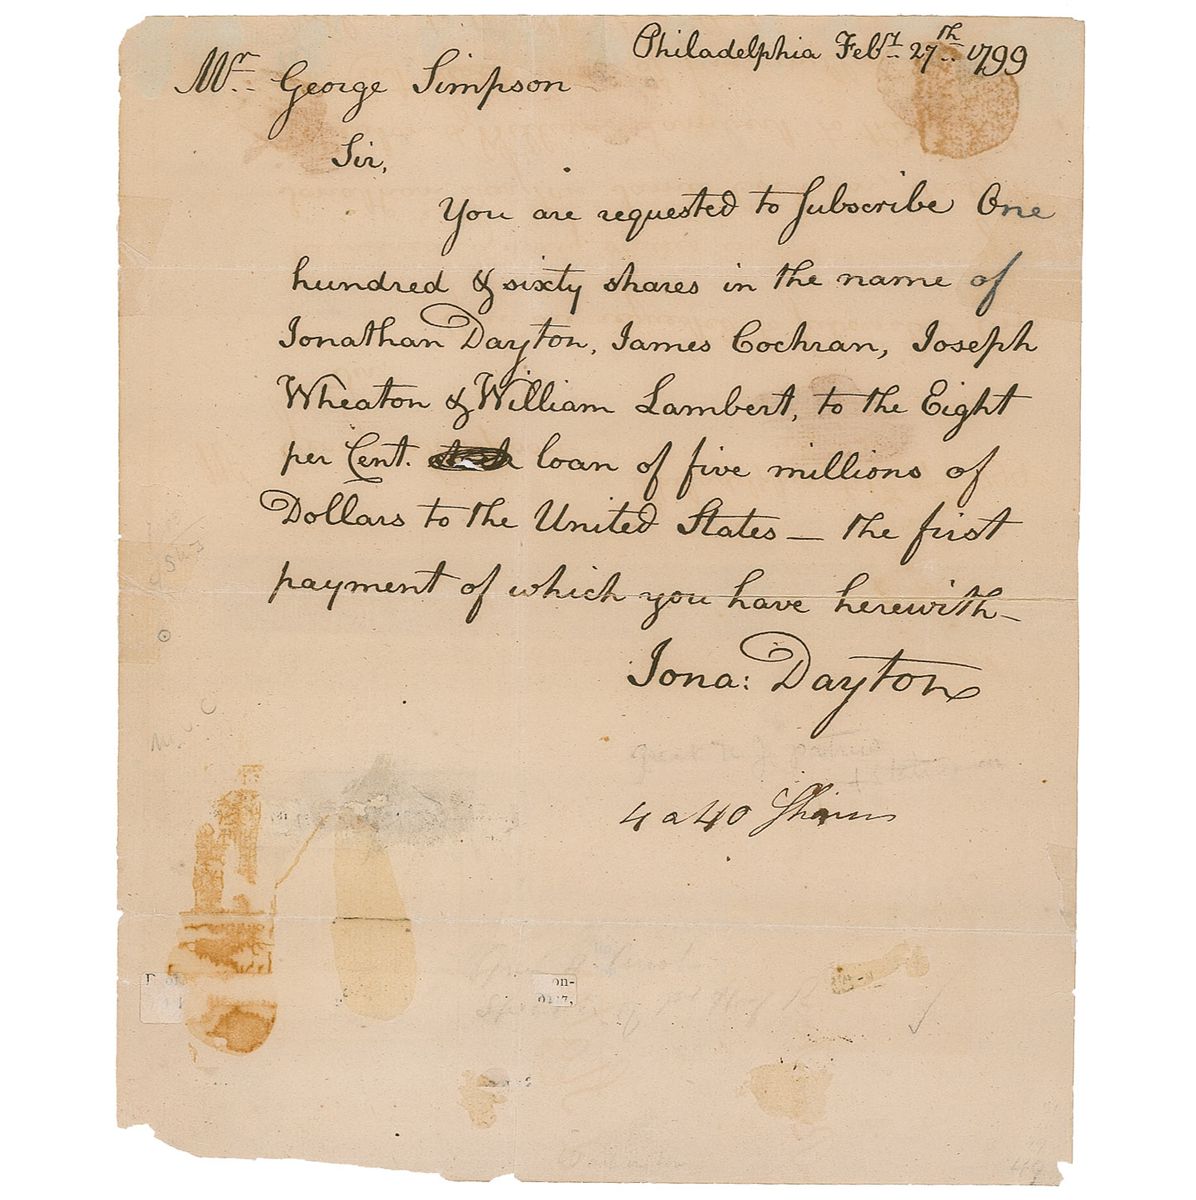 Philadelphia Feby. 27th. 1799
Mr. George Simpson
Sir,
You are requested to subscribe One
hundred & sixty shares in the name of
Jonathan Dayton, James Cochran, Joseph
Wheaton & William Lambert, to the Eight
per Cent. loan of five millions of
Dollars to the United States — the first
payment of which you have herewith—
Jona: Dayton
4 a 40 Shares
on-